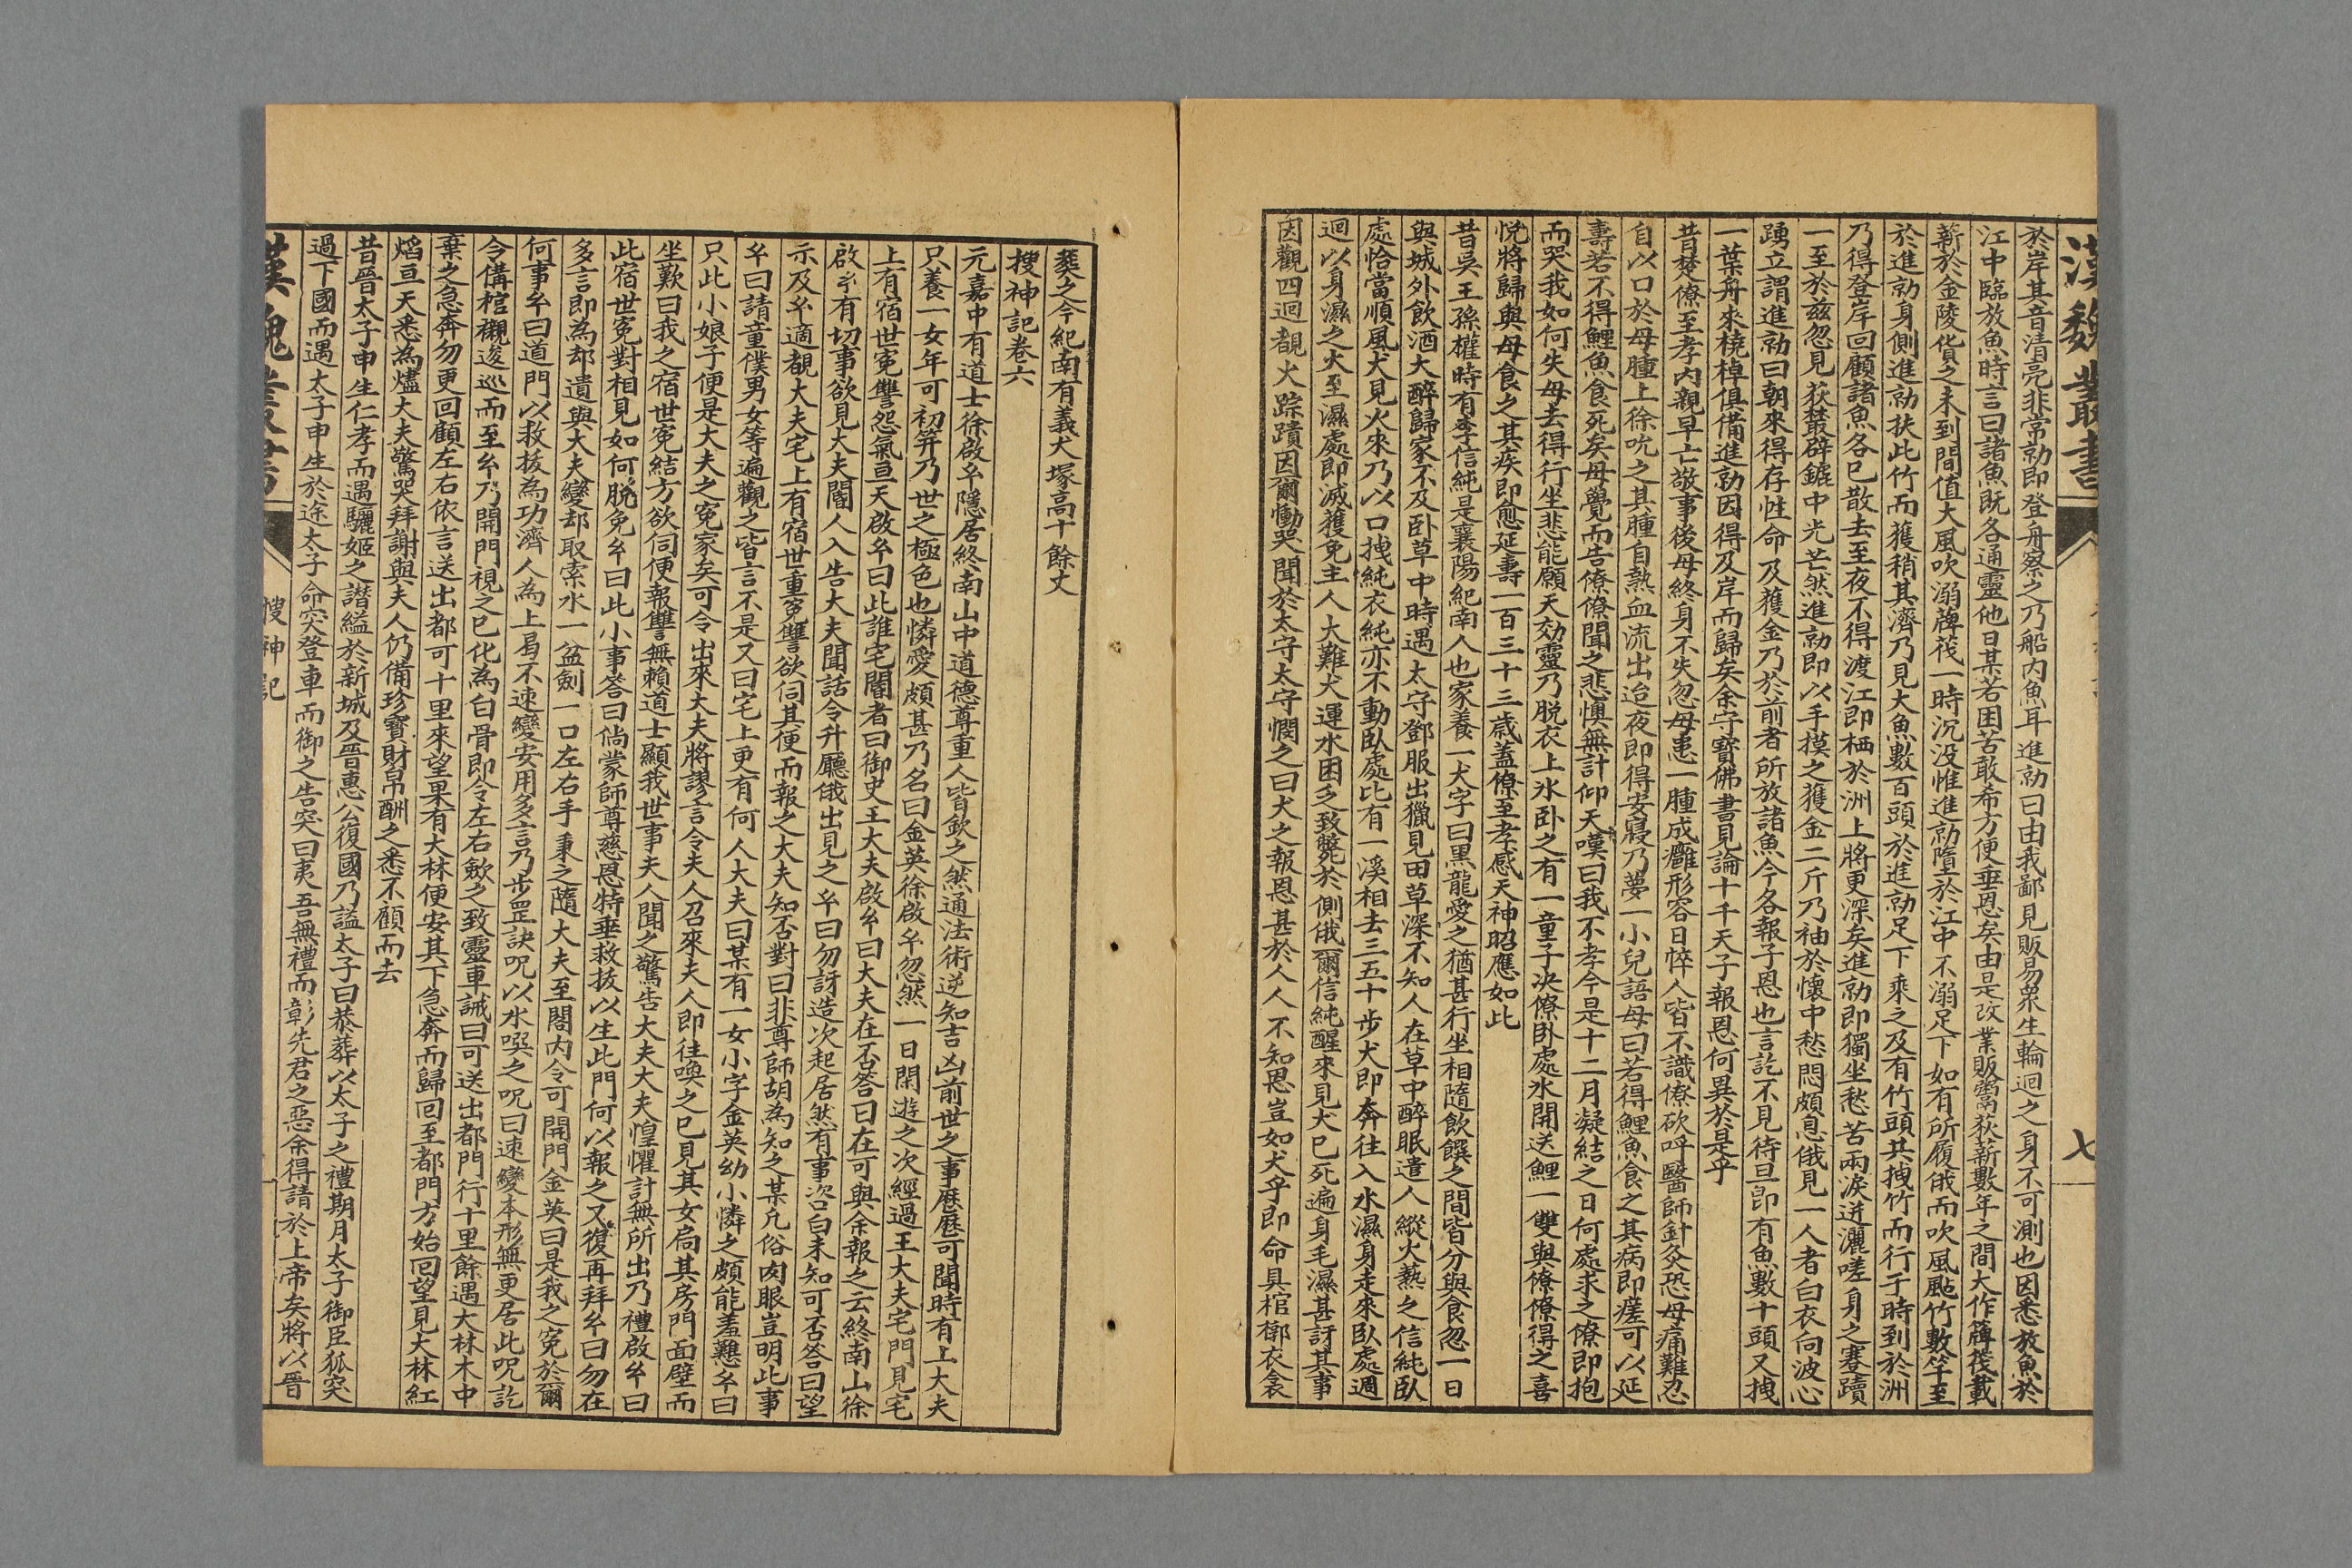 漢魏叢書
七
於岸其音清亮非常勍即登舟察之乃船内魚耳進勍曰由我鄙見販易衆生輪迴之身不可測也因悉放魚於
江中臨放魚時言曰諸魚既各通靈他日某若困苦敢希方便垂恩矣由是改業販鬻荻薪數年之間大作簰筏載
薪於金陵貨之未到間值大風吹溺簰筏一時沉没惟進勍墮於江中不溺足下如有所履俄而吹風颭竹數竿至
於進勍身側進勍扶此竹而獲稍其濟乃見大魚數百頭於進勍足下乘之及有竹頭共拽竹而行于時到於洲
乃得登岸回顧諸魚各已散去至夜不得渡江即栖於洲上將更深矣進勍即獨坐愁苦兩淚迸灑嗟身之蹇躓
一至於兹忽見荻叢辟鏇中光芒然進勍即以手摸之獲金二斤乃袖於懷中愁悶頗息俄見一人者白衣向波心
踴立謂進勍曰朝來得存性命及獲金乃於前者所放諸魚今各報子恩也言訖不見待旦即有魚數十頭又拽
一葉舟來橈棹俱備進勍因得及岸而歸矣余字寶佛書見論十千天子報恩何異於是乎
昔楚僚至孝内親早亡敬事後母終身不失忽母患一腫成癰形容日悴人皆不識僚欲呼醫師針灸恐母痛難忍
自以口於母腫上徐吮之其腫自熟血流出迨夜即得安寢乃夢一小兒語母曰若得鯉魚食之其病即瘥可以延
壽若不得鯉魚食死矣母覺而告僚僚聞之悲懊無計仰天嘆曰我不孝今是十二月凝結之日何處求之僚即抱
而哭我如何失母去得行坐悲能願天効靈乃脱衣上氷卧之有一童子決僚卧處氷開送鯉一雙與僚僚得之喜
悦將歸與母食之其疾即愈延壽一百三十三歲蓋僚至孝感天神昭應如此
昔吳王孫權時有李信純是襄陽紀南人也家養一犬字曰黑龍愛之猶甚行坐相隨飲饌之間皆分與食忽一日
與城外飲酒大醉歸家不及卧草中時遇太守鄧服出獵見田草深不知人在草中醉眠遣人縱火爇之信純臥
處恰當順風犬見火來乃以口拽純衣純亦不動臥處比有一溪相去三五十步犬即奔往入水濕身走來臥處週
迴以身濕之火至濕處即滅獲免主人大難犬運水困乏致斃於側俄爾信純醒來見犬已死遍身毛濕甚訝其事
因觀四迴覩火踪蹟因爾慟哭聞於太守太守憫之曰犬之報恩甚於人人不知恩豈如犬乎即命具棺槨衣衾
葬之今紀南有義犬塚高十餘丈
搜神記卷六
元嘉中有道士徐啟𢆯隱居終南山中道德尊重人皆欽之然通法術逆知吉凶前世之事歷歷可聞時有上大夫
只養一女年可初笄乃世之極色也憐愛頗甚乃名曰金英徐啟𢆯忽然一日閑遊之次經過王大夫宅門見宅
上有宿世寃讐怨氣亘天啟𢆯曰此誰宅閽者曰御史王大夫啟𢆯曰大夫在否答曰在可與余報之云終南山徐
啟𢆯有切事欲見大夫閽人入告大夫聞話令升廳俄出見之𢆯曰勿訝造次起居然有事咨白未知可否答曰望
示及𢆯適覩大夫宅上有宿世重寃讐欲伺其便而報之大夫知否對曰非尊師胡為知之某凡俗肉眼豈明此事
𢆯曰請童僕男女等遍觀之皆言不是又曰宅上更有何人大夫曰某有一女小字金英幼小憐之頗能羞戁𢆯曰
只此小娘子便是大夫之寃家矣可令出來大夫將謬言令夫人召來夫人即往喚之已見其女扃其房門面壁而
坐歎曰我之宿世寃結方欲伺便報讐無賴道士顯我世事夫人聞之驚告大夫大夫惶懼計無所出乃禮啟𢆯曰
此宿世寃對相見如何脱免𢆯曰此小事答曰倘蒙師尊慈恩特垂救拔以生此門何以報之又復再拜𢆯曰勿在
多言即為却遺與大夫變却取索水一盆劍一口左右手秉之隨大夫至閤内令可開門金英曰是我之寃於爾
何事𢆯曰道門以救拔為功濟人為上曷不速變安用多言乃步罡訣呪以水噀之呪曰速變本形無更居此呪訖
令備棺櫬逡巡而至𢆯乃開門視之已化為白骨即令左右歛之致靈車誡曰可送出都門行十里餘遇大林木中
棄之急奔勿更回顧左右依言送出都可十里來望果有大林便安其下急奔而歸回至都門方始回望見大林紅
熖亘天悉為燼大夫驚哭拜謝與夫人仍備珍寶財帛酬之悉不顧而去
昔晉太子申生仁孝而遇驪姬之譖縊於新城及晉惠公復國乃謚太子曰恭葬以太子之禮期月太子御臣狐突
過下國而遇太子申生於途太子命突登車而御之告突曰夷吾無禮而彰先君之惡余得請於上帝矣將以晉
漢魏叢書
搜神記
一